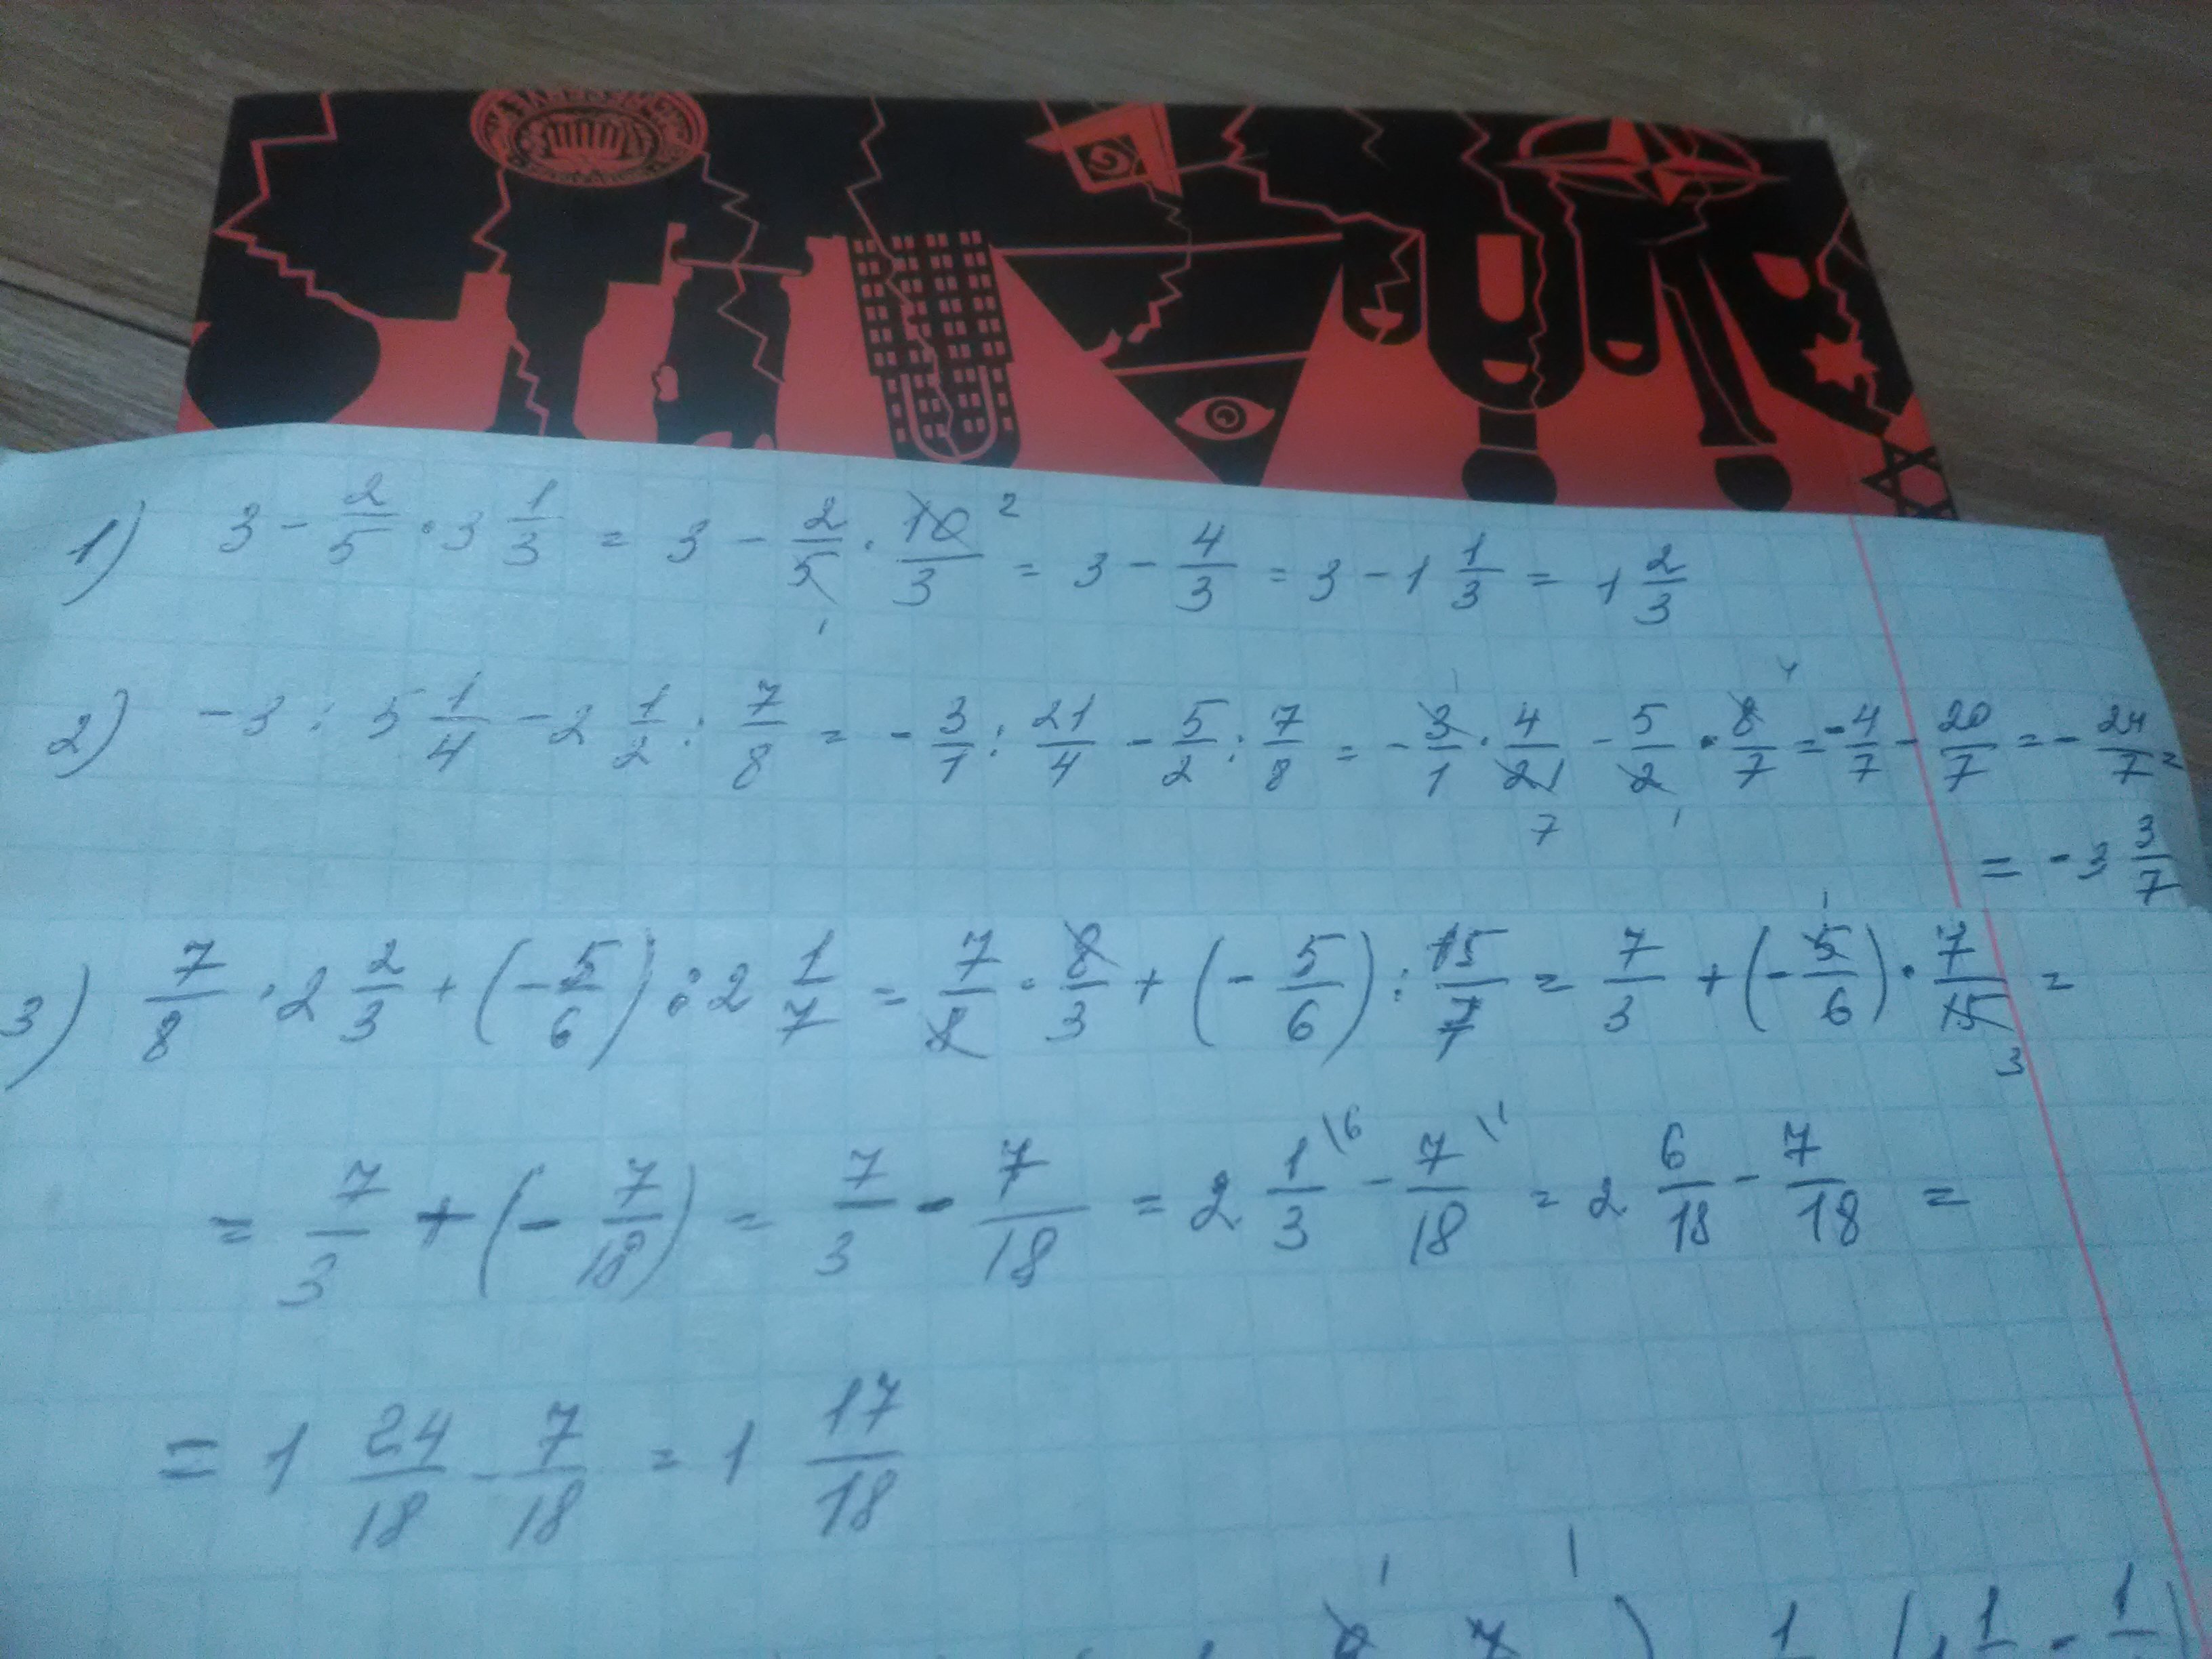 1) 3 - 2/5 · 3 1/3 = 3 - 2/5 · 10/3 2 = 3 - 4/3 = 3 - 1 1/3 = 1 2/3
1
1 4
2) -3 : 5 1/4 - 2 1/2 : 7/8 = - 3/1 : 21/4 - 5/2 : 7/8 = - 3/1 · 4/21 - 5/2 · 8/7 = -4/7 - 20/7 = - 24/7 =
7 1
= -3 3/7
1
3) 7/8 · 2 2/3 + (- 5/6) : 2 1/7 = 7/8 · 8/3 + (- 5/6) : 15/7 = 7/3 + (- 5/6) · 7/15 =
3
= 7/3 + (- 7/18) = 7/3 - 7/18 = 2 1/3 \6 - 7/18 \1 = 2 6/18 - 7/18 =
= 1 24/18 - 7/18 = 1 17/18
1 1